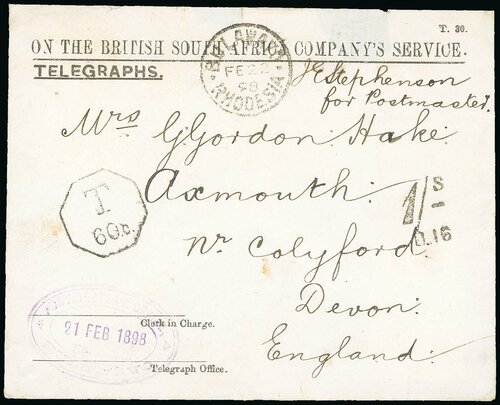 T. 30.
ON THE BRITISH SOUTH AFRICA COMPANY'S SERVICE.
TELEGRAPHS.
BULAWAYO
FE 22
98
RHODESIA
JEStephenson
for Postmaster.
Mrs G. Gordon Hake.
Axmouth.
Nr Colyford.
Devon.
England.
T
60c.
1/S
D.16
21 FEB 1898
Clerk in Charge.
Telegraph Office.